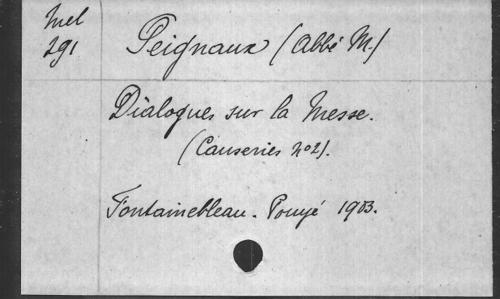 Mel
291
Peignaux (Abbé M.)
Dialogues sur la Messe.
(Causeries Nº2).
Fontainebleau. Pouyé 1903.